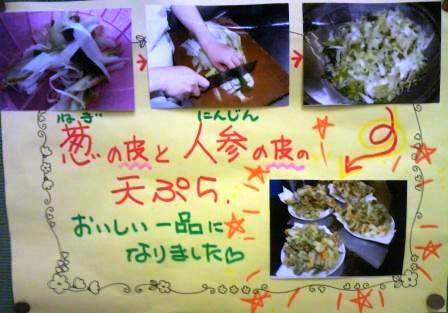 ねぎ にんじん
葱の皮と人参の皮の
天ぷら.
おいしい一品に
なりました♡